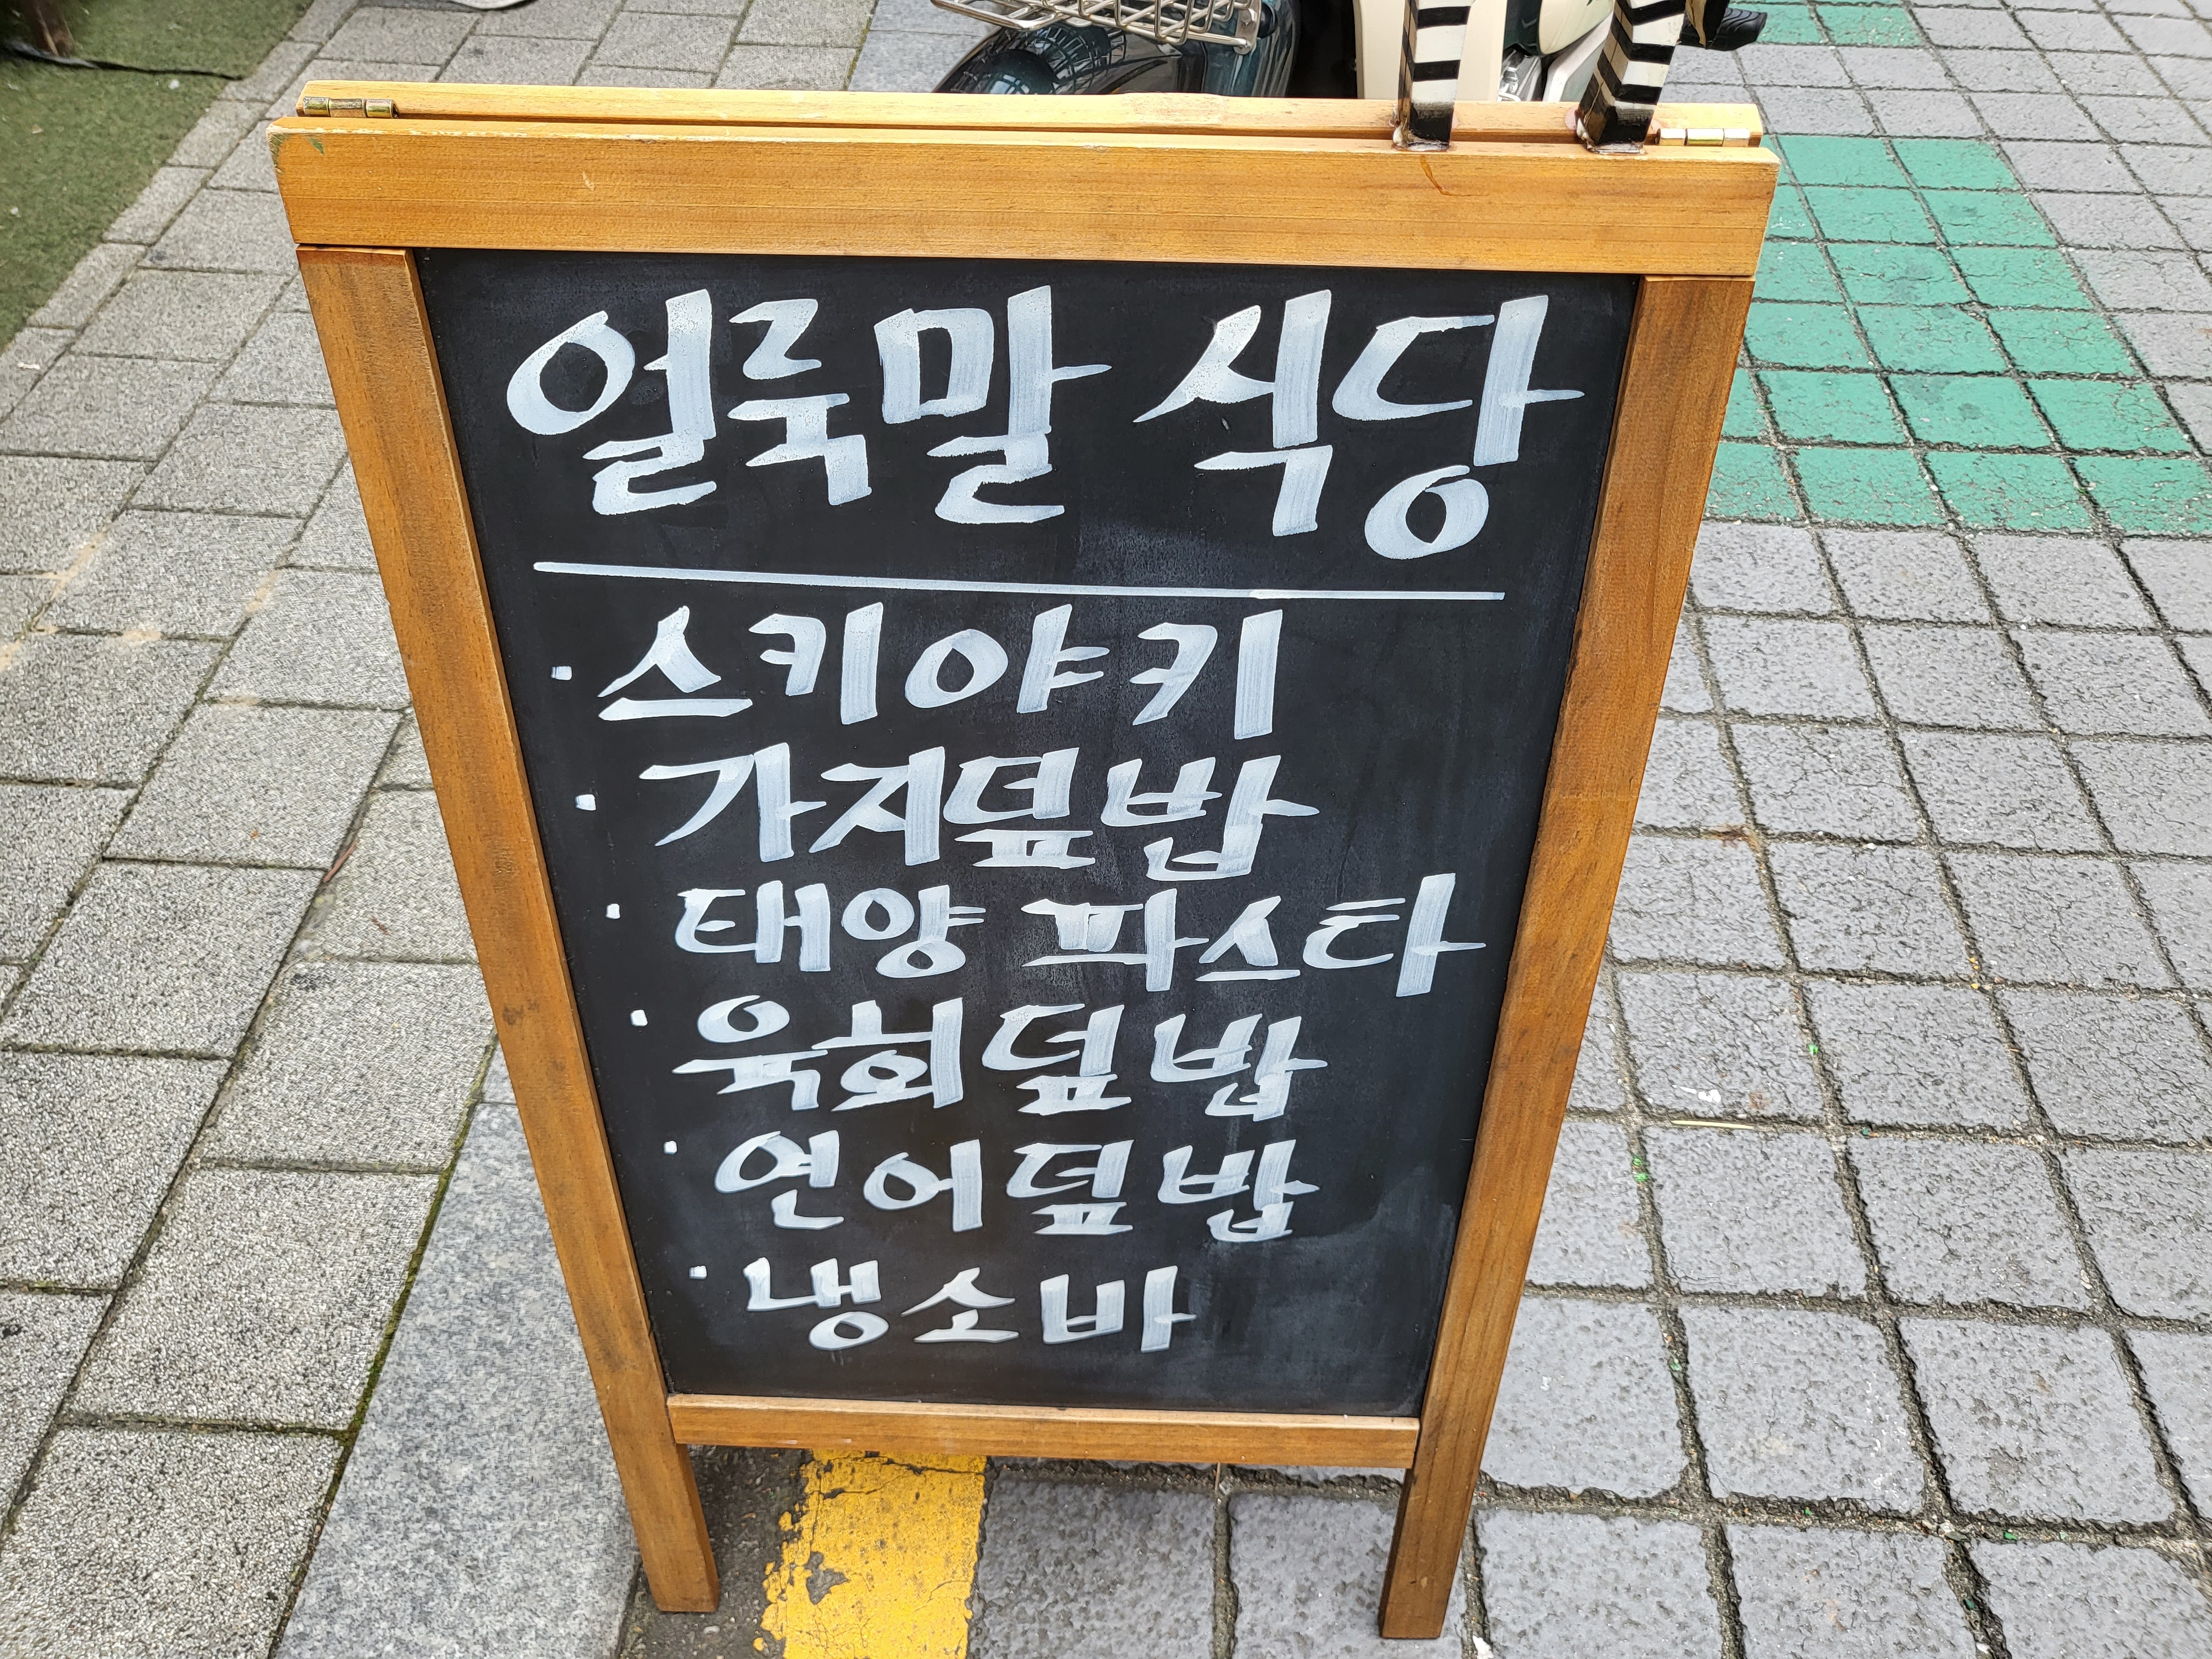 얼룩말 식당
· 스키야키
· 가지덮밥
· 태양 파스타
· 육회덮밥
· 연어덮밥
· 냉소바